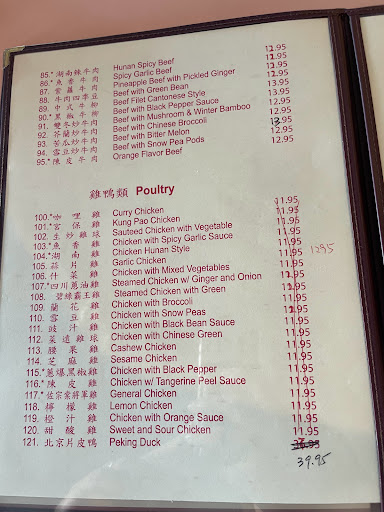 85.* 湖南辣牛肉 Hunan Spicy Beef 12.95
86.* 魚香牛肉 Spicy Garlic Beef 12.95
87. 紫蘿牛肉 Pineapple Beef with Pickled Ginger 12.95
88. 牛肉四季豆 Beef with Green Bean 12.95
89. 中式牛柳 Beef Filet Cantonese Style 13.95
90.* 黑椒牛柳 Beef with Black Pepper Sauce 13.95
91. 雙冬炒牛肉 Beef with Mushroom & Winter Bamboo 12.95
92. 芥蘭炒牛肉 Beef with Chinese Broccoli 12.95
93. 苦瓜炒牛肉 Beef with Bitter Melon 13.95
94. 雪豆炒牛肉 Beef with Snow Pea Pods 12.95
95.* 陳皮牛肉 Orange Flavor Beef 12.95
雞鴨類 Poultry
100.* 咖哩雞 Curry Chicken 11.95
101.* 宮保雞 Kung Pao Chicken 11.95
102. 生炒雞球 Sauteed Chicken with Vegetable 11.95
103.* 魚香雞 Chicken with Spicy Garlic Sauce 11.95
104.* 湖南雞 Chicken Hunan Style 11.95
105. 蒜片雞 Garlic Chicken 11.95 12.95
106. 什菜雞 Chicken with Mixed Vegetables 11.95
107.* 四川蔥油雞 Steamed Chicken w/ Ginger and Onion 11.95
108. 碧綠霸王雞 Steamed Chicken with Green 12.95
109. 蘭花雞 Chicken with Broccoli 11.95
110. 雪豆雞 Chicken with Snow Peas 11.95
111. 豉汁雞 Chicken with Black Bean Sauce 11.95
112. 菜遠雞球 Chicken with Chinese Green 11.95
113. 腰果雞 Cashew Chicken 11.95
114. 芝麻雞 Sesame Chicken 11.95
115.* 蔥爆黑椒雞 Chicken with Black Pepper 11.95
116.* 陳皮雞 Chicken w/ Tangerine Peel Sauce 11.95
117.* 佐宗棠將軍雞 General Chicken 11.95
118. 檸檬雞 Lemon Chicken 11.95
119. 橙汁雞 Chicken with Orange Sauce 11.95
120. 甜酸雞 Sweet and Sour Chicken 11.95
121. 北京片皮鴨 Peking Duck
39.95